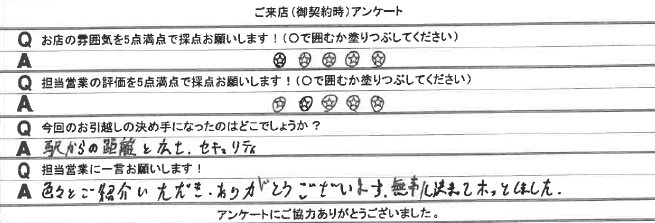 ご来店（御契約時）アンケート
Q お店の雰囲気を5点満点で採点お願いします！（○で囲むか塗りつぶしてください）
A ☆☆☆☆☆
Q 担当営業の評価を5点満点で採点お願いします！（○で囲むか塗りつぶしてください）
A ☆☆☆☆☆
Q 今回のお引越しの決め手になったのはどこでしょうか？
A 駅からの距離と広さ、セキュリティ
Q 担当営業に一言お願いします！
A 色々とご紹介いただき、ありがとうございます。無事に決まってホッとしました。
アンケートにご協力ありがとうございました。